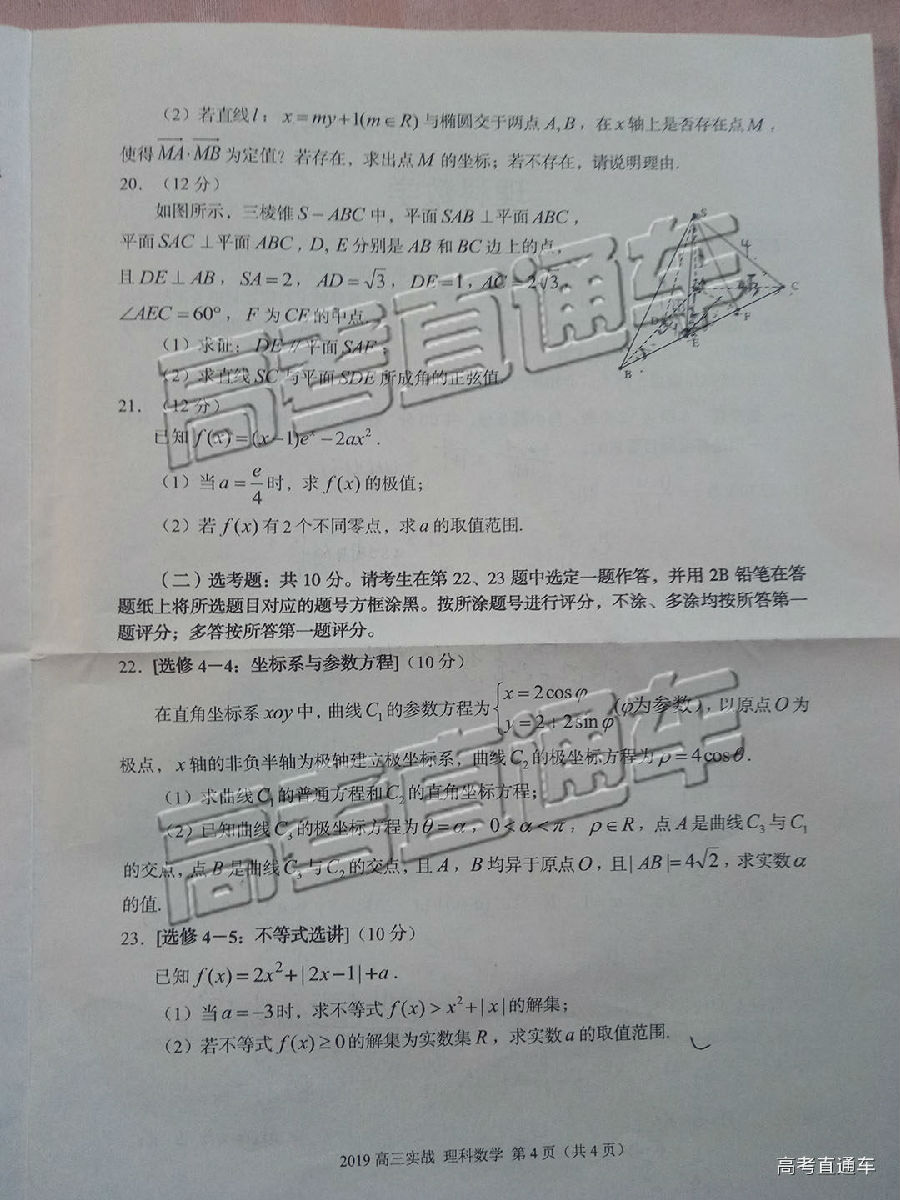 （2）若直线l：x=my+1(m∈R)与椭圆交于两点A,B，在x轴上是否存在点M，
使得MA·MB为定值？若存在，求出点M的坐标；若不存在，请说明理由.
20.（12分）
如图所示，三棱锥S-ABC中，平面SAB⊥平面ABC，
平面SAC⊥平面ABC，D,E分别是AB和BC边上的点，
且DE⊥AB，SA=2，AD=√3，DE=1，AC=2√3，
∠AEC=60°，F为CE的中点.
（1）求证：DE//平面SAF；
（2）求直线SC与平面SDE所成角的正弦值.
S
C
D
F
E
B
21.（12分）
已知f(x)=(x-1)eˣ-2ax².
（1）当a=e/4时，求f(x)的极值；
（2）若f(x)有2个不同零点，求a的取值范围.
（二）选考题：共10分。请考生在第22、23题中选定一题作答，并用2B铅笔在答
题纸上将所选题目对应的题号方框涂黑。按所涂题号进行评分，不涂、多涂均按所答第一
题评分；多答按所答第一题评分。
22.[选修4-4：坐标系与参数方程]（10分）
在直角坐标系xoy中，曲线C₁的参数方程为{x=2cosφ y=2+2sinφ(φ为参数)，以原点O为
极点，x轴的非负半轴为极轴建立极坐标系，曲线C₂的极坐标方程为ρ=4cosθ.
（1）求曲线C₁的普通方程和C₂的直角坐标方程；
（2）已知曲线C₃的极坐标方程为θ=α，0<α<π，ρ∈R，点A是曲线C₃与C₁
的交点，点B是曲线C₃与C₂的交点，且A，B均异于原点O，且|AB|=4√2，求实数α
的值.
23.[选修4-5：不等式选讲]（10分）
已知f(x)=2x²+|2x-1|+a.
（1）当a=-3时，求不等式f(x)>x²+|x|的解集；
（2）若不等式f(x)≥0的解集为实数集R，求实数a的取值范围.
2019高三实战 理科数学 第4页（共4页）
高考直通车
高考直通车
高考直通车